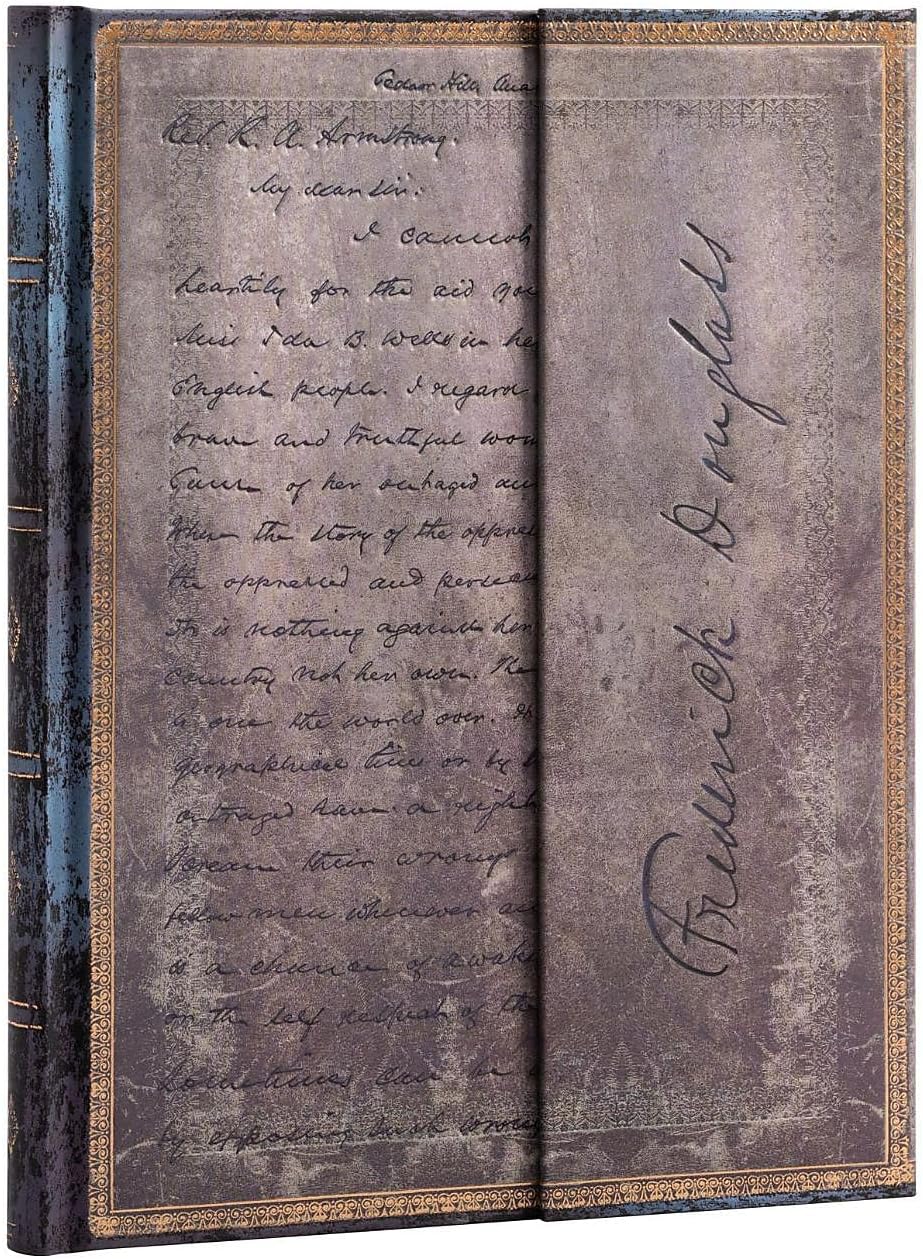 Cedar Hill, Ana
Rev. R. A. Armstrong.
My dear Sir:
I cannot
heartily for the aid you
Miss Ida B. Wells in he
English people. I regard
brave and truthful wom
Cause of her outraged an
Where the story of the oppres
the oppressed and persecu
It is nothing against her
country not her own. The
is one the world over.
geographical lines or by
outraged have a right
their wrongs
fellow men wherever
is a chance of awake
on the self respect of the
Sometimes can be
by opposing such wrong
Frederick Douglass